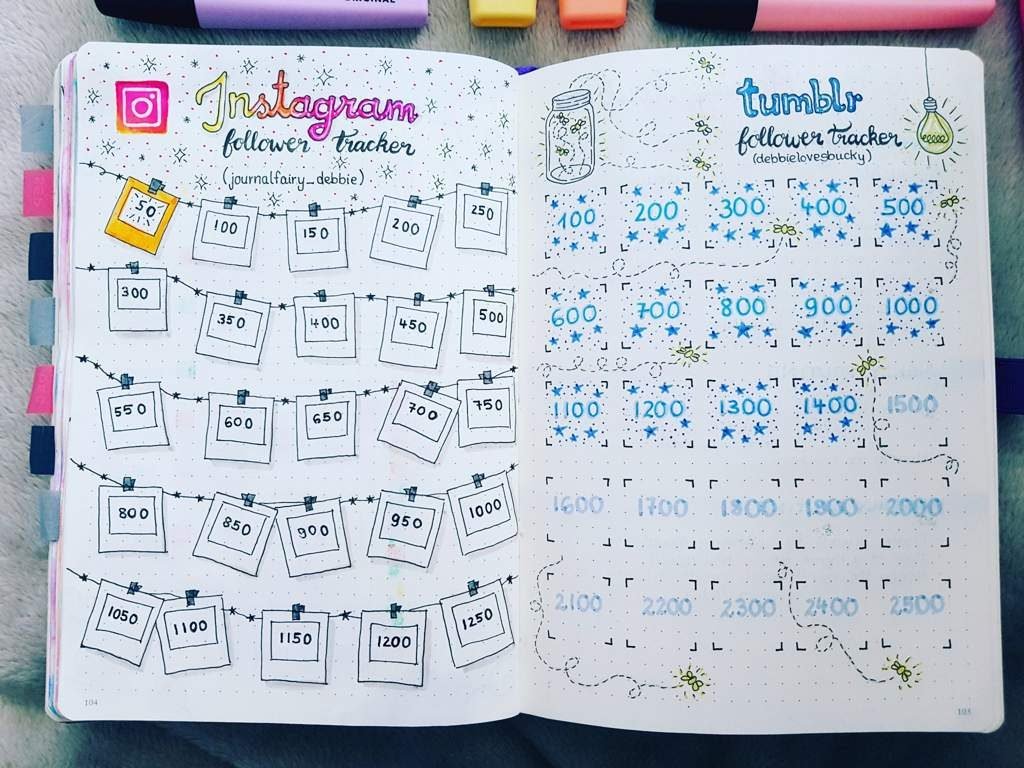 ORIGINAL
Instagram
follower tracker
(journalfairy_debbie)
50 100 150 200 250
300 350 400 450 500
550 600 650 700 750
800 850 900 950 1000
1050 1100 1150 1200 1250
104
tumblr
follower tracker
(debbielovesbucky)
100 200 300 400 500
600 700 800 900 1000
1100 1200 1300 1400 1500
1600 1700 1800 1900 2000
2100 2200 2300 2400 2500
105